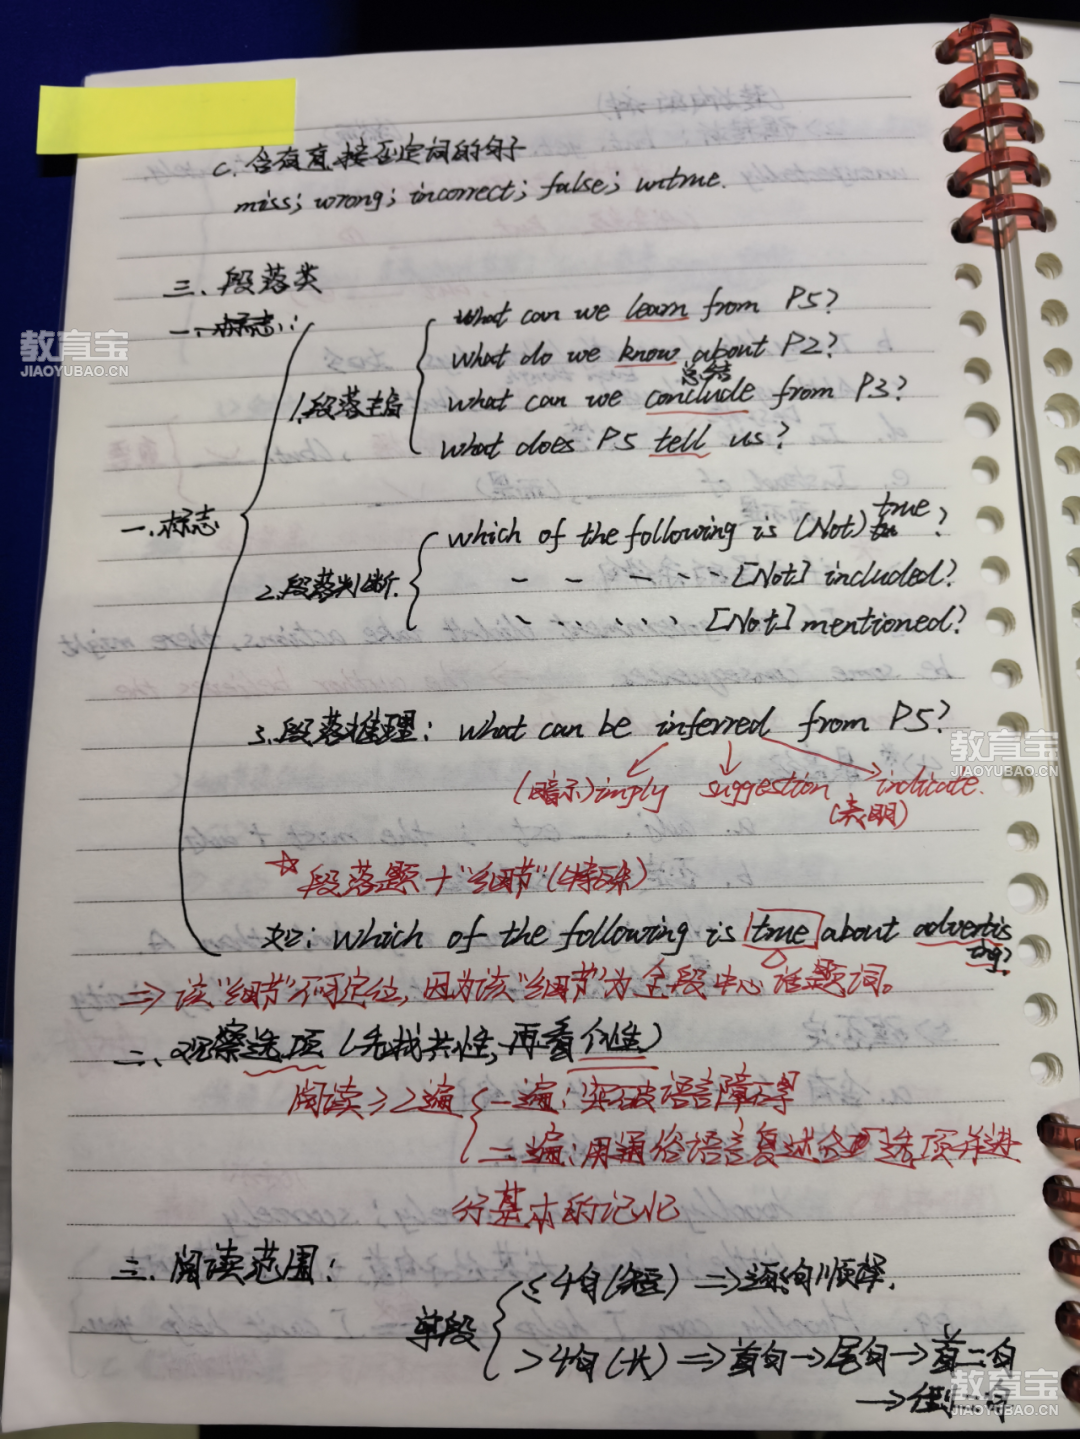 C. 含有直接否定词的句子
miss; wrong; incorrect; false; untrue.
三、段落类
一、标志:
What can we learn from P5?
What do we know about P2?
总结
1.段落主旨
What can we conclude from P3?
What does P5 tell us?
一.标志
which of the following is (Not) true ?
2.段落判断.
- - - - - [Not] included?
[Not] mentioned?
3.段落推理: what can be inferred from P5?
(暗示) imply suggestion indicate.
(表明)
☆段落题+"细节"(特殊)
如: which of the following is true about advertising?
⇒该"细节"不可定位,因为该"细节"为全段中心话题词。
二、观察选项(先找共性,再看个性)
阅读≥2遍 一遍:突破语言障碍
二遍:用通俗语言复述 选项并进
行基本的记忆
三.阅读范围:
单段
≤4句(短)⇒逐句顺择.
>4句(长)⇒首句→尾句→首二句
→倒二句
教育宝
JIAOYUBAO.CN
教育宝
JIAOYUBAO.CN
教育宝
JIAOYUBAO.CN